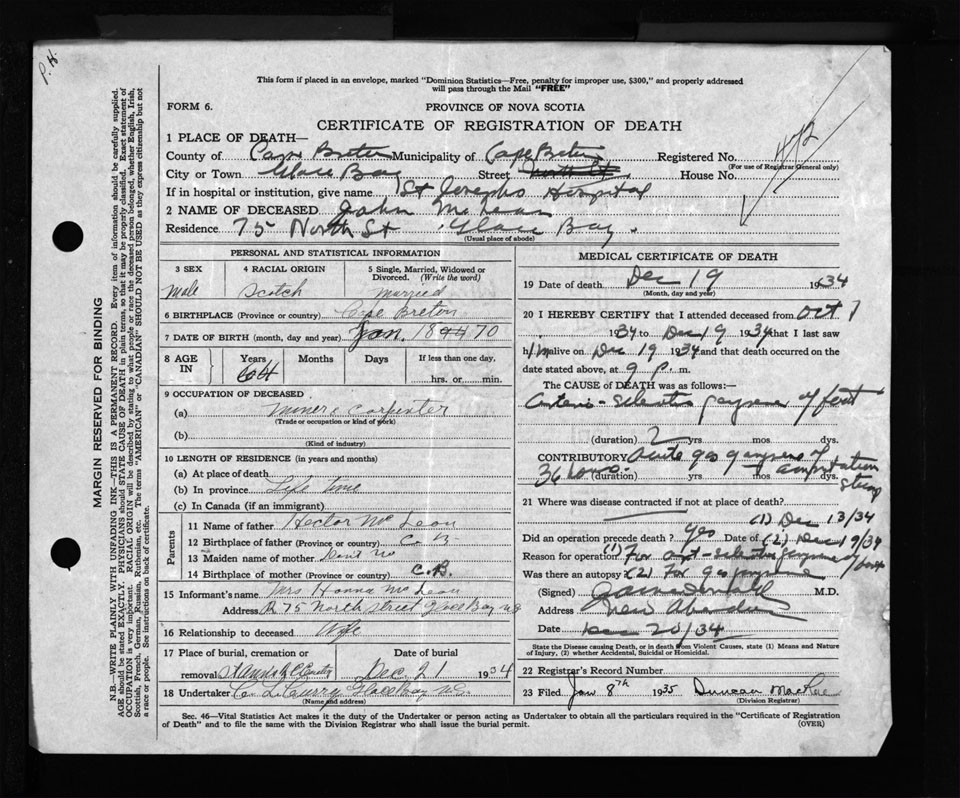 P. H.
This form if placed in an envelope, marked "Dominion Statistics—Free, penalty for improper use, $300," and properly addressed
will pass through the Mail "FREE"
FORM 6.
PROVINCE OF NOVA SCOTIA
CERTIFICATE OF REGISTRATION OF DEATH
1 PLACE OF DEATH—
County of Cape Breton Municipality of Cape Breton Registered No. 472
(For use of Registrar General only)
City or Town Glace Bay Street North St House No.
If in hospital or institution, give name St Josephs Hospital
2 NAME OF DECEASED John McLean
Residence 75 North St Glace Bay.
(Usual place of abode)
PERSONAL AND STATISTICAL INFORMATION
3 SEX
male
4 RACIAL ORIGIN
Scotch
5 Single, Married, Widowed or
Divorced. (Write the word)
married
6 BIRTHPLACE (Province or country) Cape Breton
7 DATE OF BIRTH (month, day and year) Jan. 1870
8 AGE
IN
Years
64
Months
Days
If less than one day,
hrs. or min.
9 OCCUPATION OF DECEASED
(a) Miner & Carpenter
(Trade or occupation or kind of work)
(b)
(Kind of industry)
10 LENGTH OF RESIDENCE (in years and months)
(a) At place of death
(b) In province Life time
(c) In Canada (if an immigrant)
Parents
11 Name of father Hector McLean
12 Birthplace of father (Province or country) C. B.
13 Maiden name of mother Dont no
14 Birthplace of mother (Province or country) C.B.
15 Informant's name Mrs Hanna McLean
Address 75 North street Glace Bay N S
16 Relationship to deceased Wife
17 Place of burial, cremation or
removal
Date of burial
Dec 21 1934
18 Undertaker Curry Glace Bay N.S.
(Name and address)
MEDICAL CERTIFICATE OF DEATH
19 Date of death Dec 19 1934
(Month, day and year)
20 I HEREBY CERTIFY that I attended deceased from Oct 1
1934 to Dec 19 1934 that I last saw
him alive on Dec 19 1934 and that death occurred on the
date stated above, at 9 p. m.
The CAUSE of DEATH was as follows:—
Arterio-Sclerotic gangrene of feet
(duration) 2 yrs mos dys.
CONTRIBUTORY Acute gas gangrene of
36 hours. (duration) yrs mos dys. amputation
stump
21 Where was disease contracted if not at place of death?
Did an operation precede death? Yes Date of (1) Dec 13/34
(2) Dec 19/34
Reason for operation (1) For art-sclerotic gangrene of feet
Was there an autopsy (2) For gas gangrene
(Signed) M.D.
Address New Aberdeen
Date Dec 20/34
State the Disease causing Death, or in death from Violent Causes, state (1) Means and Nature
of Injury, (2) whether Accidental, Suicidal or Homicidal.
22 Registrar's Record Number
23 Filed Jan 8th 1935 Duncan MacRae
(Division Registrar)
Sec. 46—Vital Statistics Act makes it the duty of the Undertaker or person acting as Undertaker to obtain all the particulars required in the "Certificate of Registration
of Death" and to file the same with the Division Registrar who shall issue the burial permit.
(OVER)
MARGIN RESERVED FOR BINDING
N.B.—WRITE PLAINLY WITH UNFADING INK—THIS IS A PERMANENT RECORD. Every item of information should be carefully supplied.
AGE should be stated EXACTLY. PHYSICIANS should STATE CAUSE OF DEATH in plain terms, so that it may be properly classified. Exact statement of
OCCUPATION is very important. RACIAL ORIGIN will be described by stating to what people or race the deceased person belonged, whether English, Irish,
Scottish, French, German, Russian, Ruthenian, etc. The terms "AMERICAN" or "CANADIAN" SHOULD NOT BE USED as they express citizenship but not
a race or people. See instructions on back of certificate.